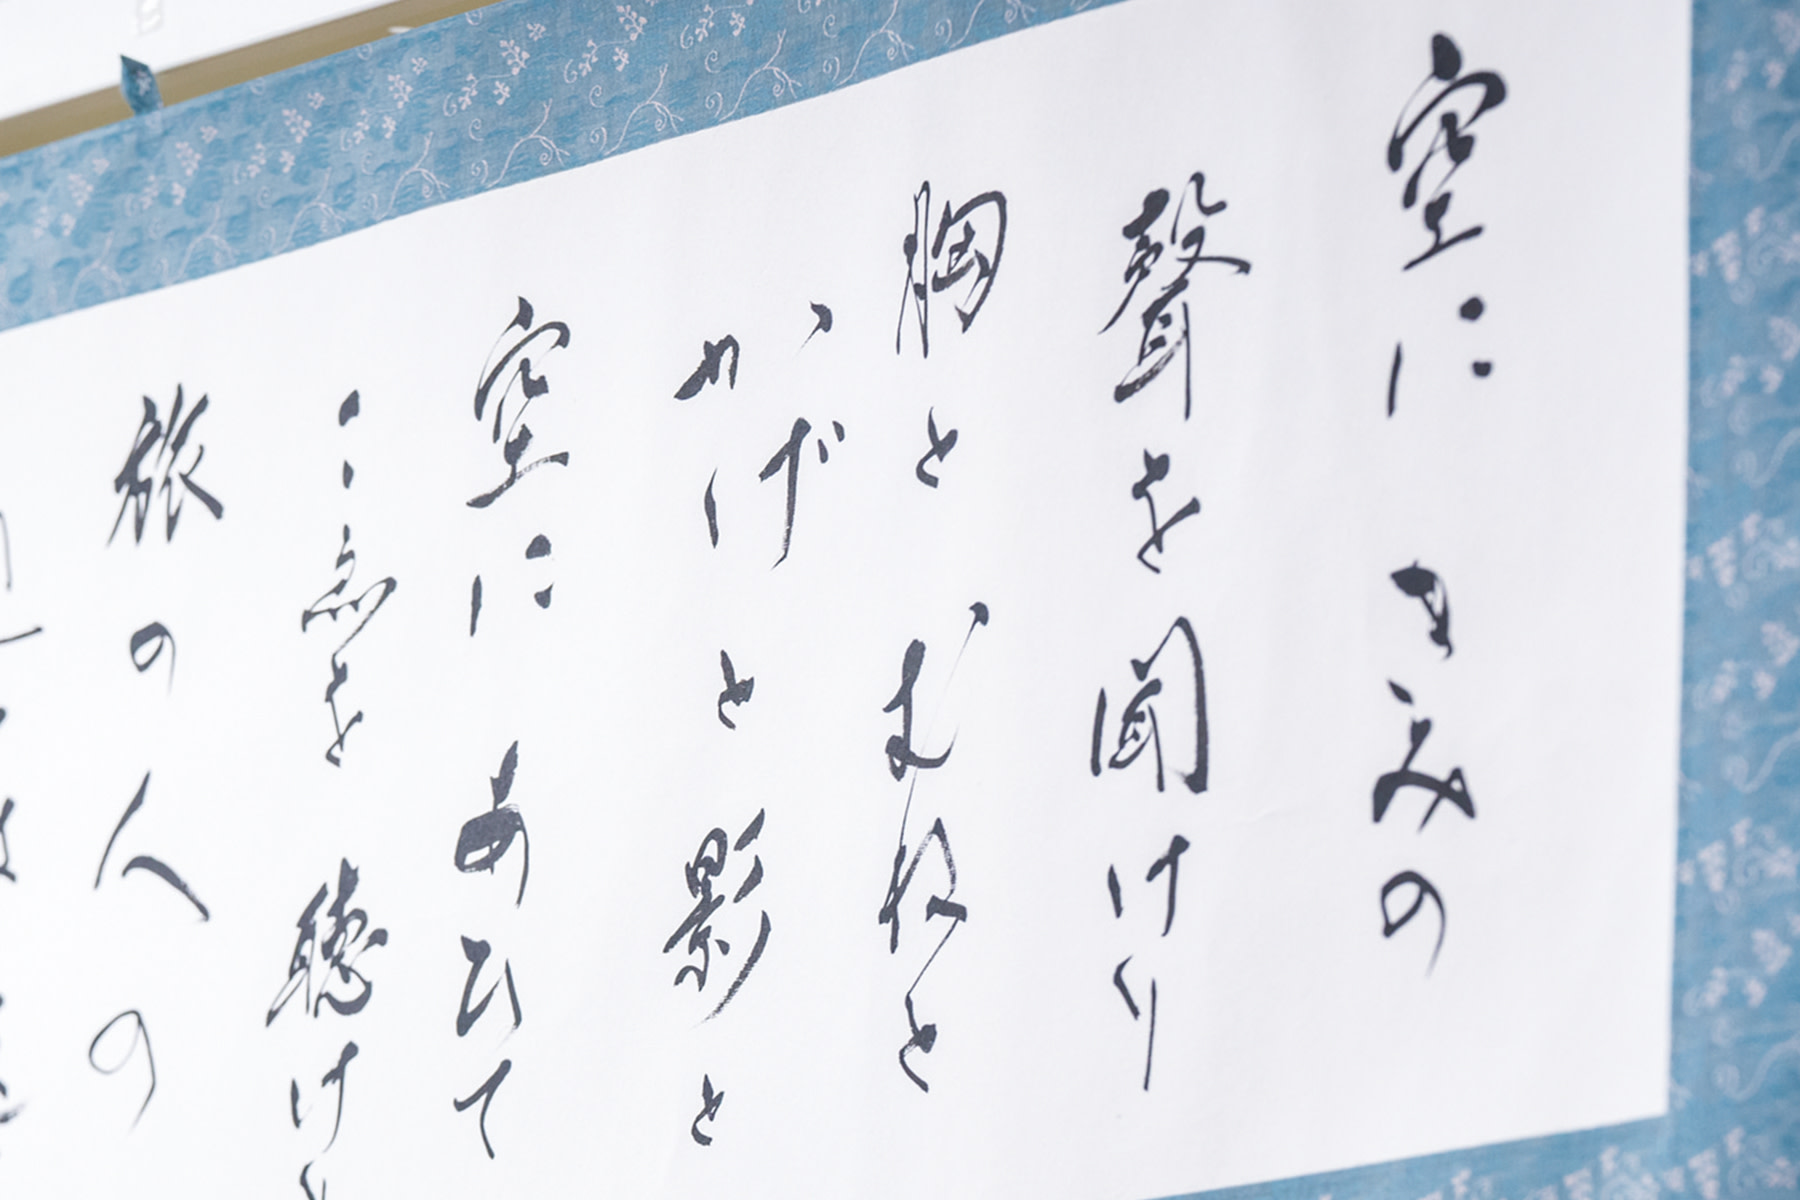 空に きみの
聲を聞けり
胸と むねと
かげと影と
空に あひて
こゑを 聴けり
旅の人の